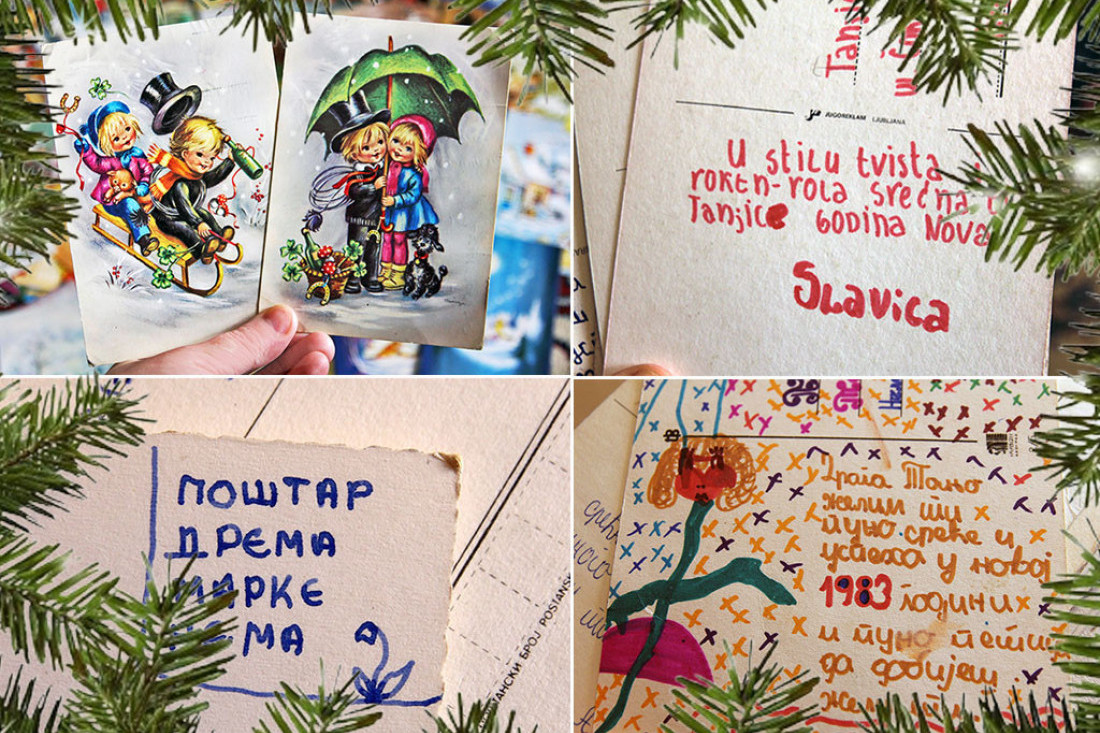 Tanj
JUGOREKLAM LJUBLJANA
U stilu tvista
roken-rola srećna
Tanjice Godina Nova
Slavica
ПОШТАР
ДРЕМА
МАРКЕ
НЕМА
ТАНСКИ БРОЈ POŠTANSK
Драга Тањо
желим ти
пуно среће и
успеха у новој
1983 години
и пуно
да добијеш.